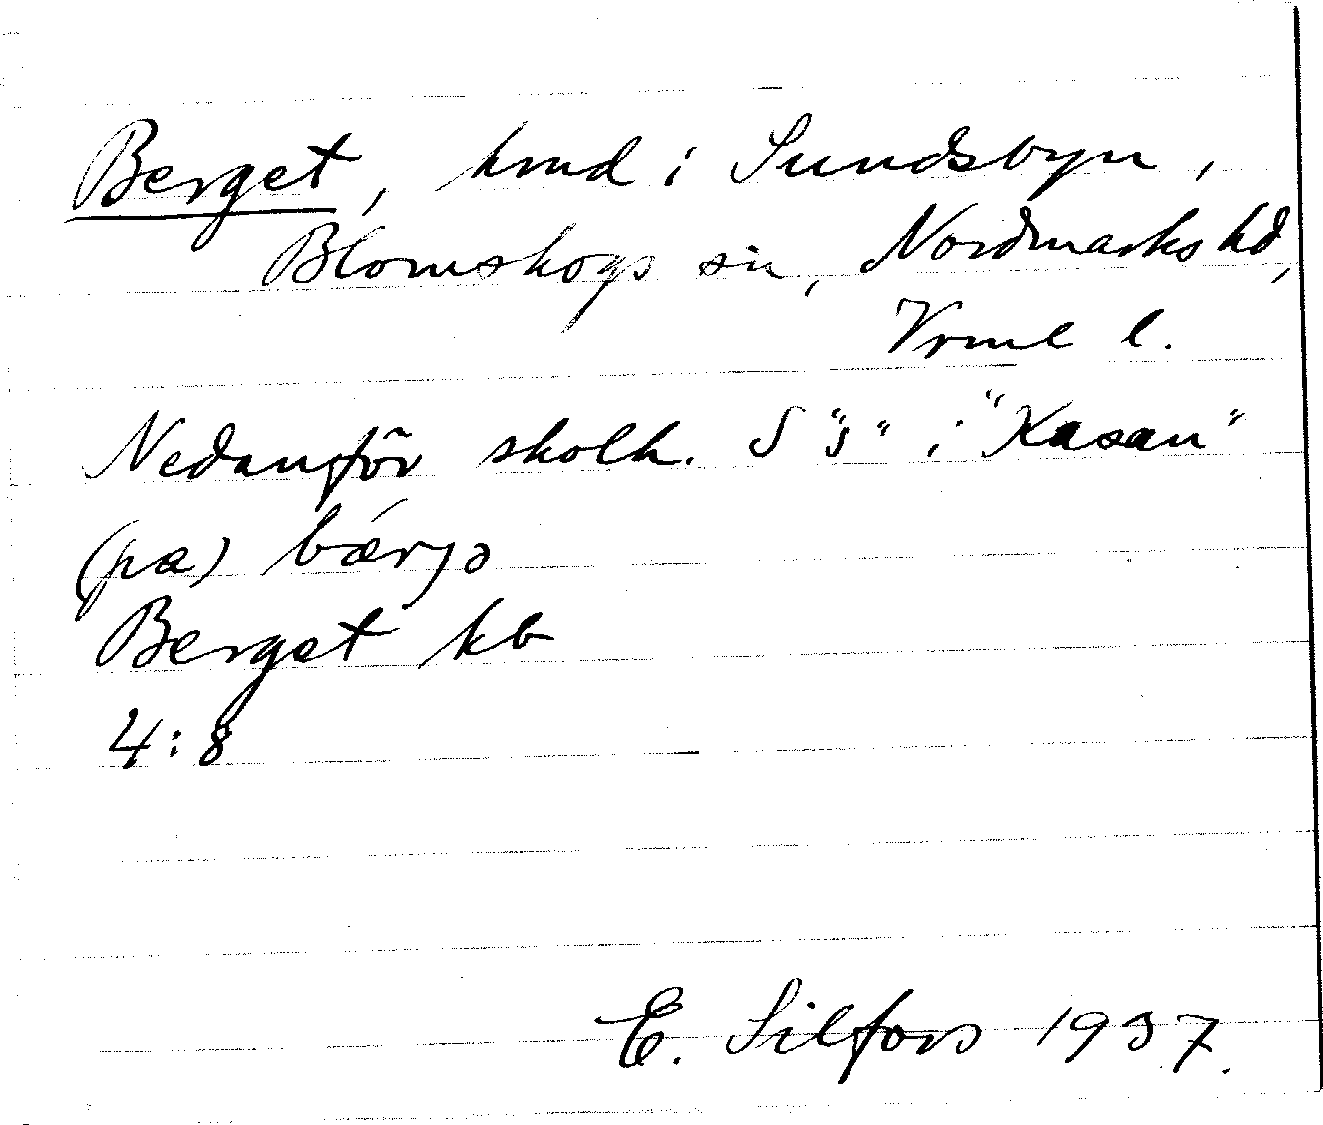 Berget, hmd i Sundsbyn,
Blomskogs sn, Nordmarks hd,
Vrml l.
Nedanför skolh. S "s" i "Kasan"
(pa) bǽrjə
Berget kb
4:8
E. Silfors 1937.